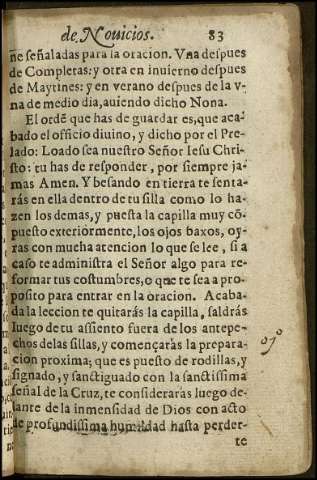 de Nouicios. 83
ñe señaladas para la oracion. Vna despues
de Completas: y otra en inuierno despues
de Maytines: y en verano despues de la v-
na de medio dia, auiendo dicho Nona.
El ordẽ que has de guardar es, que aca-
bado el officio diuino, y dicho por el Pre-
lado: Loado sea nuestro Señor Iesu Chri-
sto: tu has de responder, por siempre ja-
mas Amen. Y besando en tierra te senta-
rás en ella dentro de tu silla como lo ha-
zen los demas, y puesta la capilla muy cõ-
puesto exteriormente, los ojos baxos, oy-
ras con mucha atencion lo que se lee, si a
caso te administra el Señor algo para re-
formar tus costumbres, o que te sea a pro-
posito para entrar en la oracion. Acaba-
da la leccion te quitarás la capilla, saldrás
luego de tu assiento fuera de los antepe-
chos de las sillas, y començaràs la prepara-
cion proxima; que es puesto de rodillas, y
signado, y sanctiguado con la sanctissima
señal de la Cruz, te consideraràs luego de-
lante de la inmensidad de Dios con acto
de profundissima humildad hasta perder-
te